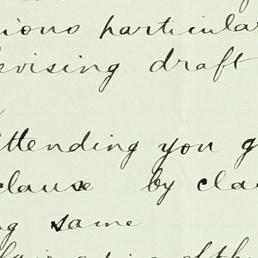 ious particular
evising draft
Attending you g
clause by cla
ng same